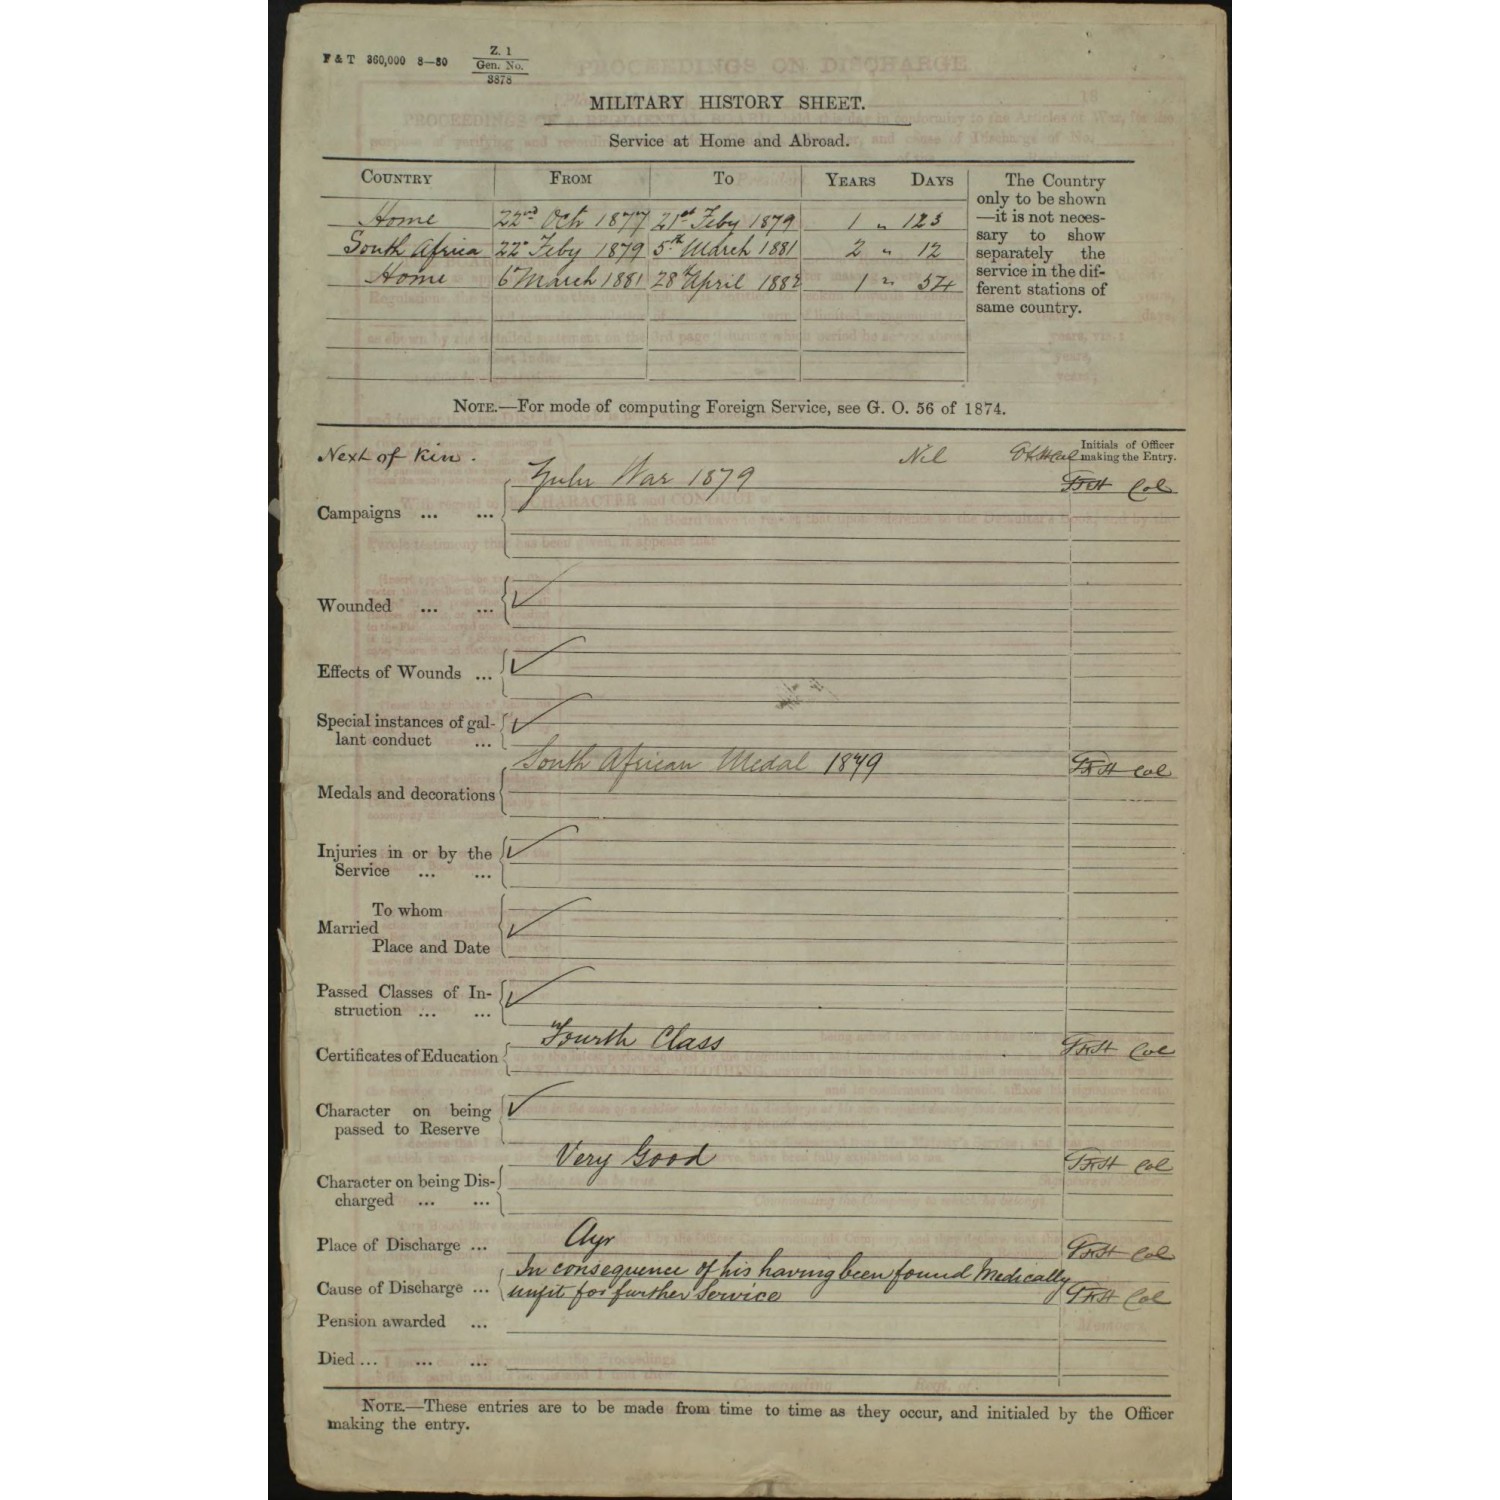 F & T 360,000 8—80 Z. 1
Gen. No.
3878
MILITARY HISTORY SHEET.
Service at Home and Abroad.
COUNTRY FROM TO YEARS DAYS
Home 22nd Oct 1877 21st Feby 1879 1 " 123
South Africa 22d Feby 1879 5th March 1881 2 " 12
Home 6th March 1881 28th April 1882 1 " 54
The Country
only to be shown
—it is not neces-
sary to show
separately the
service in the dif-
ferent stations of
same country.
NOTE.—For mode of computing Foreign Service, see G. O. 56 of 1874.
Next of Kin. Nil
Initials of Officer
making the Entry.
Campaigns ... ... Zulu War 1879 Col
Wounded ... ...
Effects of Wounds ...
Special instances of gal-
lant conduct ...
Medals and decorations South African Medal 1879 Col
Injuries in or by the
Service ... ...
To whom
Married
Place and Date
Passed Classes of In-
struction ... ...
Certificates of Education Fourth Class Col
Character on being
passed to Reserve
Character on being Dis- Very Good Col
charged ... ...
Place of Discharge ... Ayr Col
In consequence of his having been found Medically
Cause of Discharge ... unfit for further Service Col
Pension awarded ...
Died ... ... ...
NOTE.—These entries are to be made from time to time as they occur, and initialed by the Officer
making the entry.